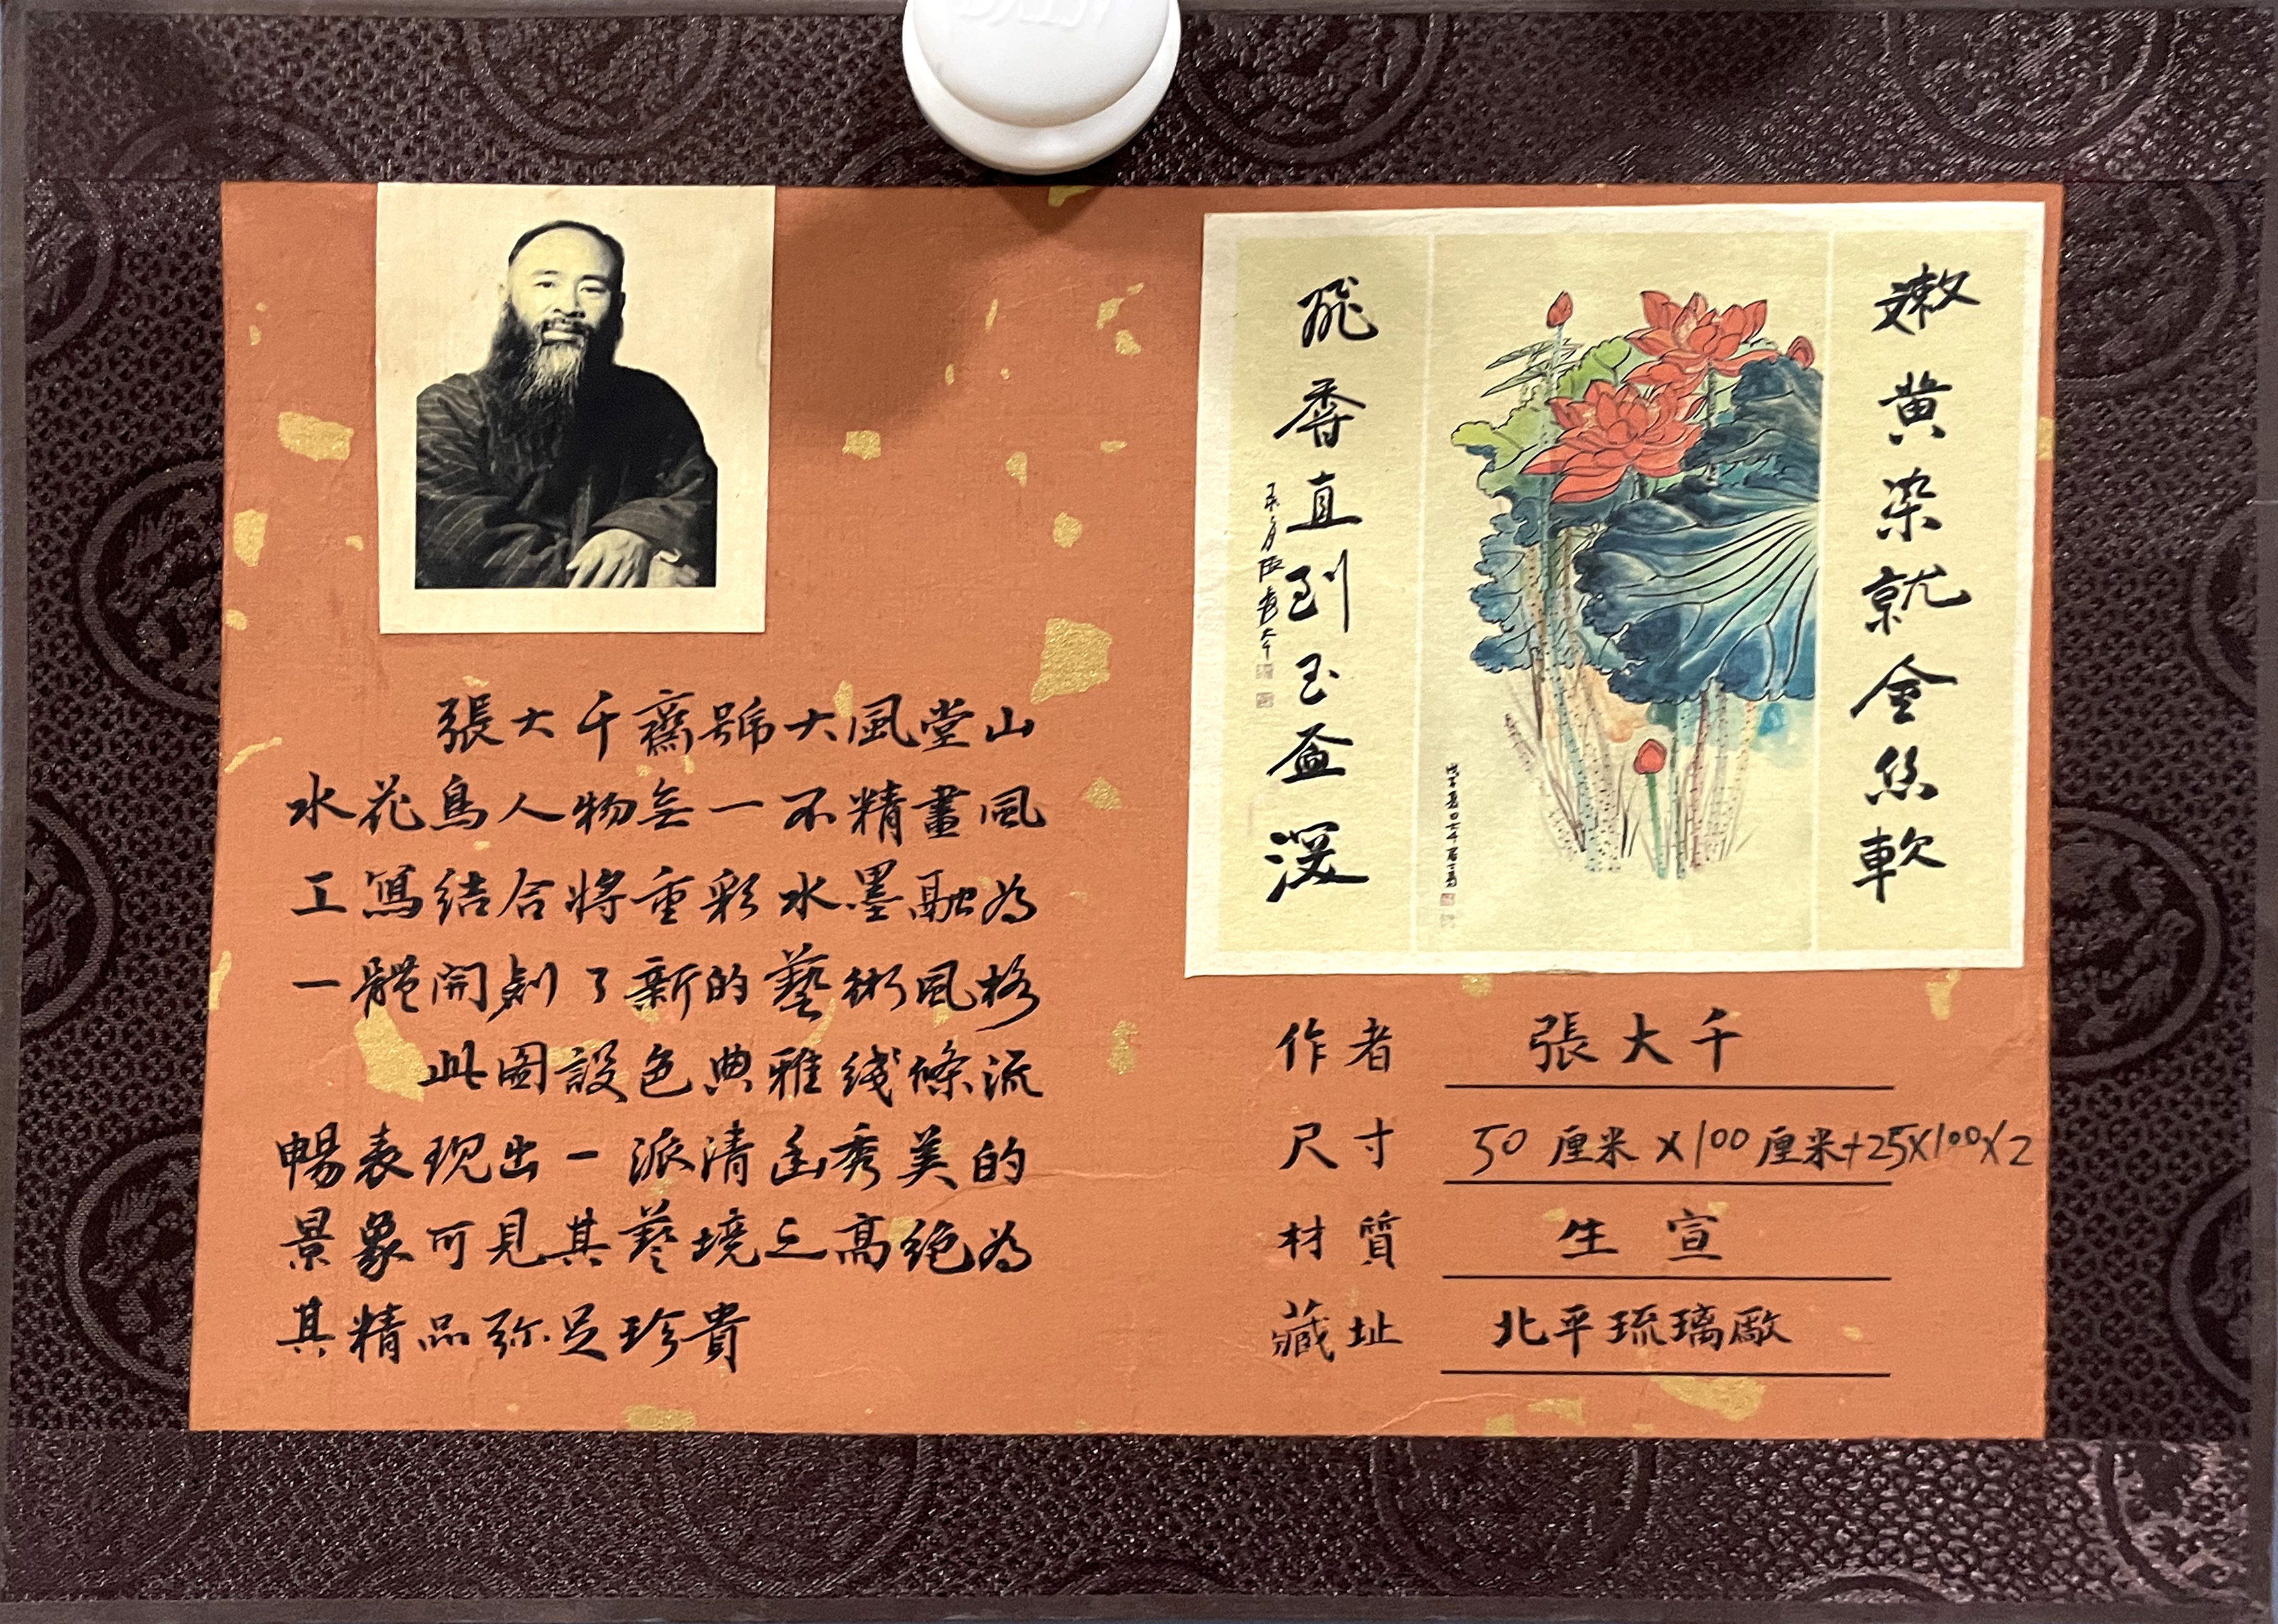 張大千齋號大風堂山
水花鳥人物無一不精畫風
工寫結合將重彩水墨融為
一體開創了新的藝術風格
此圖設色典雅綫條流
暢表現出一派清幽秀美的
景象可見其藝境之高絕為
其精品弥足珍貴
嫩黄染就金絲軟
飛香直到玉盃深
作者 張大千
尺寸 50厘米×100厘米+25×100×2
材質 生宣
藏址 北平琉璃廠